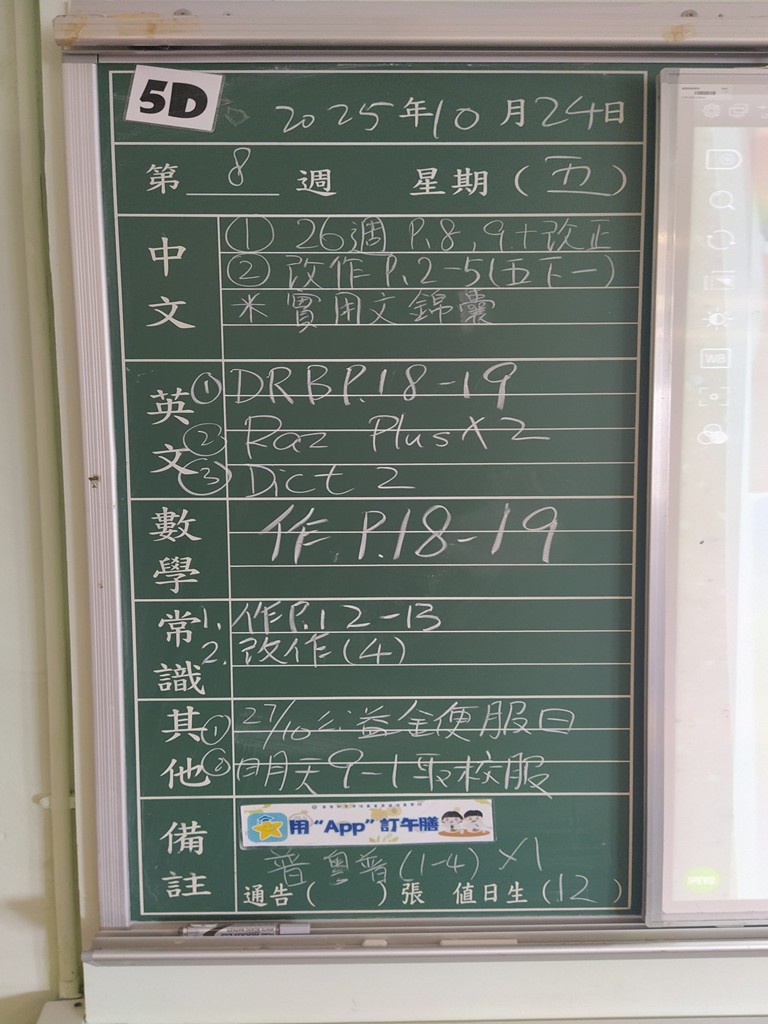 5D
2025年10月24日
第 8 週 星期(五)
中文
① 26週 P.8,9+改正
② 改作P.2-5(五下一)
* 實用文錦囊
英文
① DRB P.18-19
② Raz Plus X2
③ Dict 2
數學
作 P.18-19
常識
1. 作P.12-13
2. 改作(4)
其他
① 27/10公益金便服日
② 明天9-1取校服
備註
用"App"訂午膳
普 粵普(1-4) X1
通告( )張 值日生(12)
WB